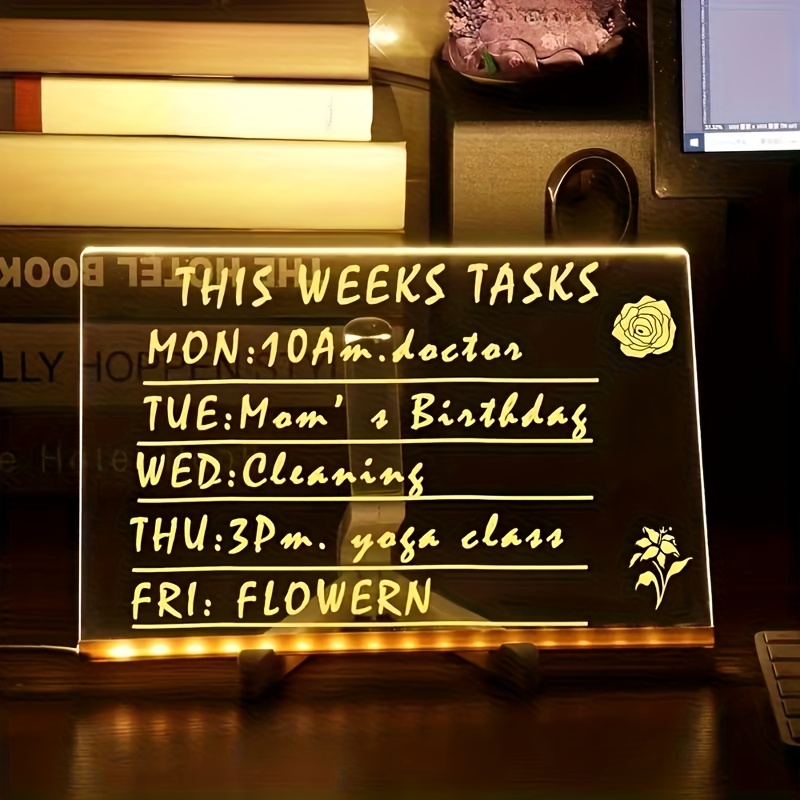 THE HOTEL BOOK
LLY HOPPEN
THIS WEEKS TASKS
MON:10Am.doctor
TUE:Mom's Birthday
WED:Cleaning
THU:3Pm. yoga class
FRI: FLOWERN